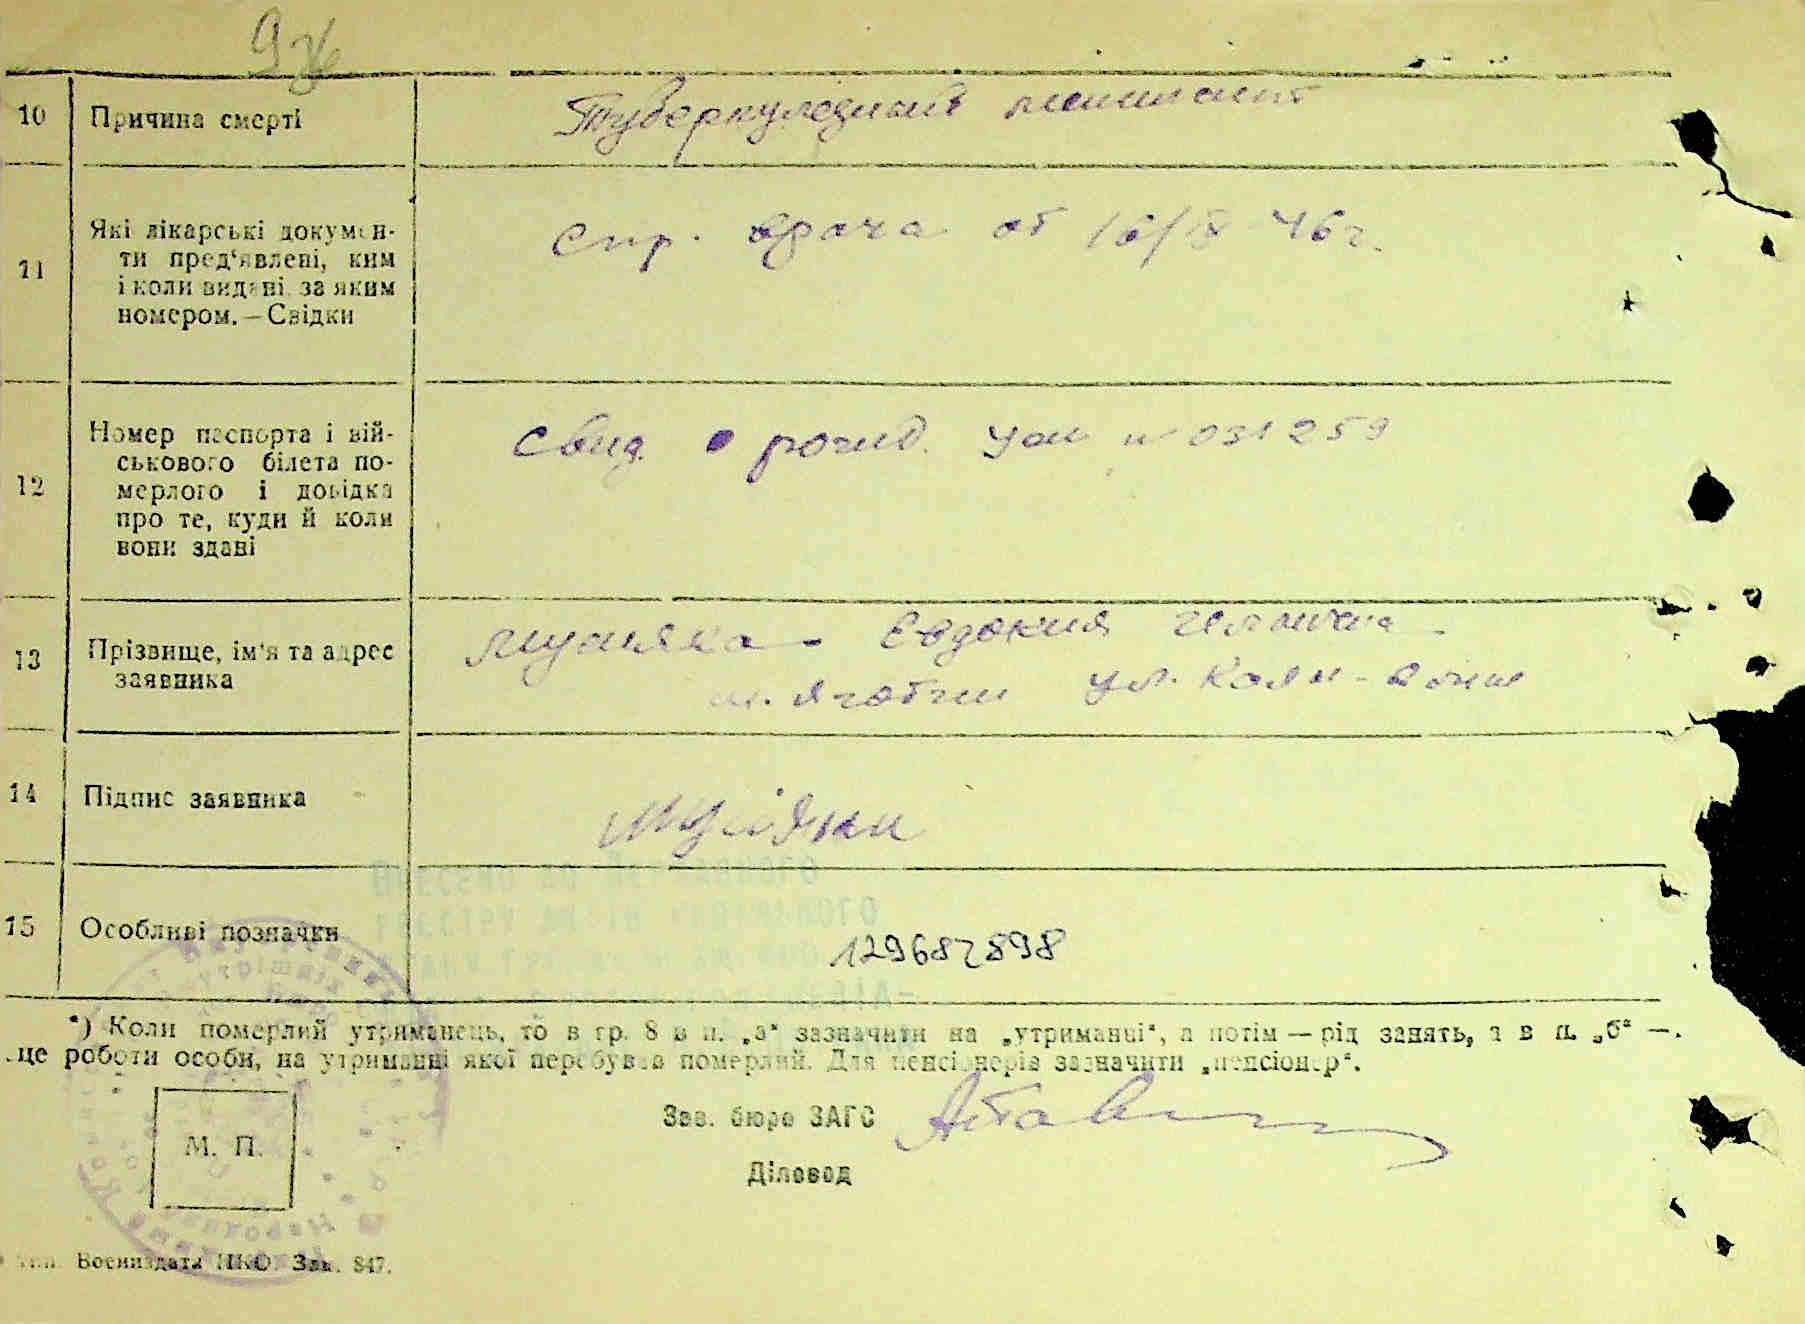 936
10 Причина смерті Туберкулезный менингит
11 Які лікарські докумен-
ти пред'явлені, ким
і коли видані за яким
номером. — Свідки
Спр. врача от 16/IX 46 г.
12 Номер паспорта і вій-
ськового білета по-
мерлого і довідка
про те, куди й коли
вони здані
Свид. о рожд. № 031259
13 Прізвище, ім'я та адрес
заявника
Евдокия
м. Яготин ул.
14 Підпис заявника
15 Особливі позначки
Внесено до Державного
реєстру актів цивільного
стану громадян
129687898
*) Коли померлий утриманець, то в гр. 8 в п. „а“ зазначити на „утриманні“, а потім — рід занять, а в п. „б“ —
це роботи особи, на утриманні якої перебував померлий. Для пенсіонерів зазначити „пенсіонер“.
М. П.
Зав. бюро ЗАГС
Діловод
тип. Воениздата НКО. Зак. 847.